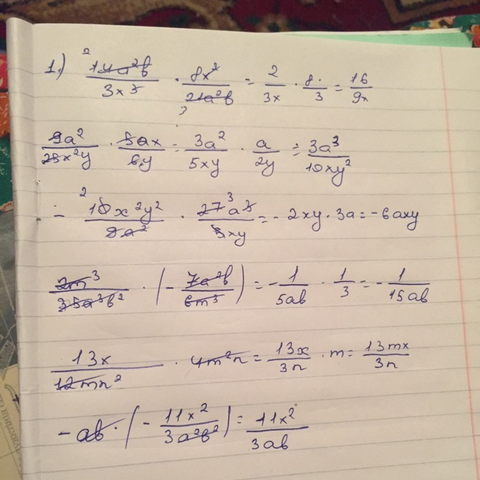 1.) 14a²b/3x³ · 8x²/21a²b = 2/3x · 8/3 = 16/9x
9a²/25x²y · 5ax/6y = 3a²/5xy · a/2y = 3a³/10xy²
- 10x²y²/9a² · 27a³/5xy = -2xy · 3a = -6axy
2m³/35a³b² · (-7a²b/6m³) = -1/5ab · 1/3 = -1/15ab
13x/12mn² · 4m²n = 13x/3n · m = 13mx/3n
-ab · (-11x²/3a²b²) = 11x²/3ab